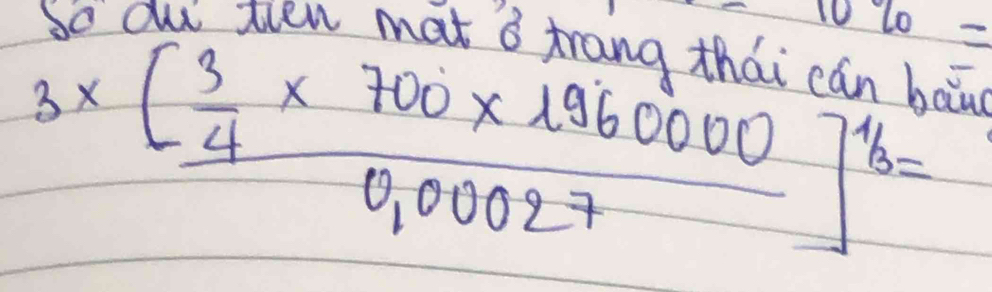 Số dư tiền mặt ở trạng thái cân bằng
10% =
3 × [ 3/4 × 700 × 1960000
0,00027 ]^1/3 =